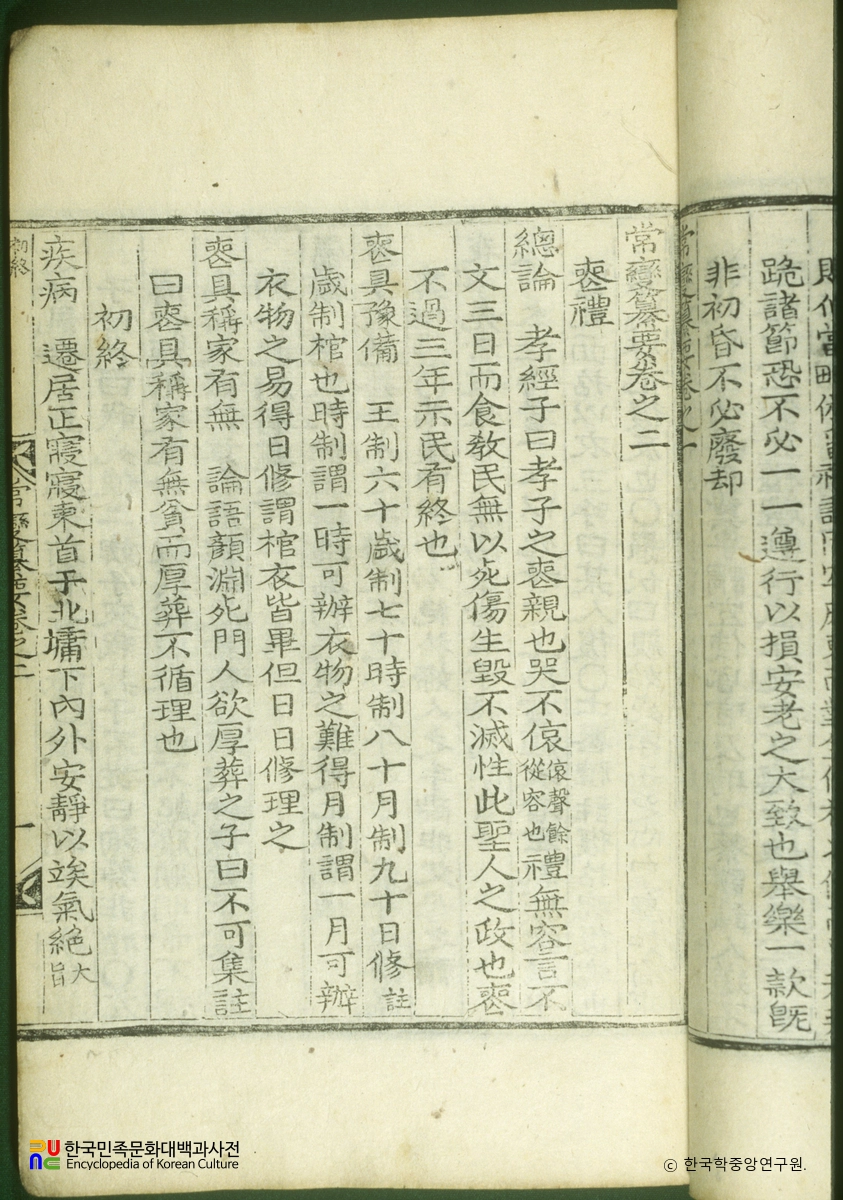 跪諸節恐不必一一遵行以損安老之大致也舉樂一款旣
非初昏不必廢却
常變纂要卷之一
常變纂要卷之二
喪禮
總論 孝經子曰孝子之喪親也哭不偯偯聲餘從容也禮無容言不
文三日而食敎民無以死傷生毀不滅性此聖人之政也喪
不過三年示民有終也
喪具豫備 王制六十歲制七十時制八十月制九十日修註
歲制棺也時制謂一時可辦衣物之難得月制謂一月可辦
衣物之易得日修謂棺衣皆畢但日日修理之
喪具稱家有無 論語顔淵死門人欲厚葬之子曰不可集註
曰喪具稱家有無貧而厚葬不循理也
初終
疾病 遷居正寢寢東首于北墉下內外安靜以竢氣絶大旨
初終
常變纂要卷之二
一
한국민족문화대백과사전
Encyclopedia of Korean Culture
© 한국학중앙연구원.